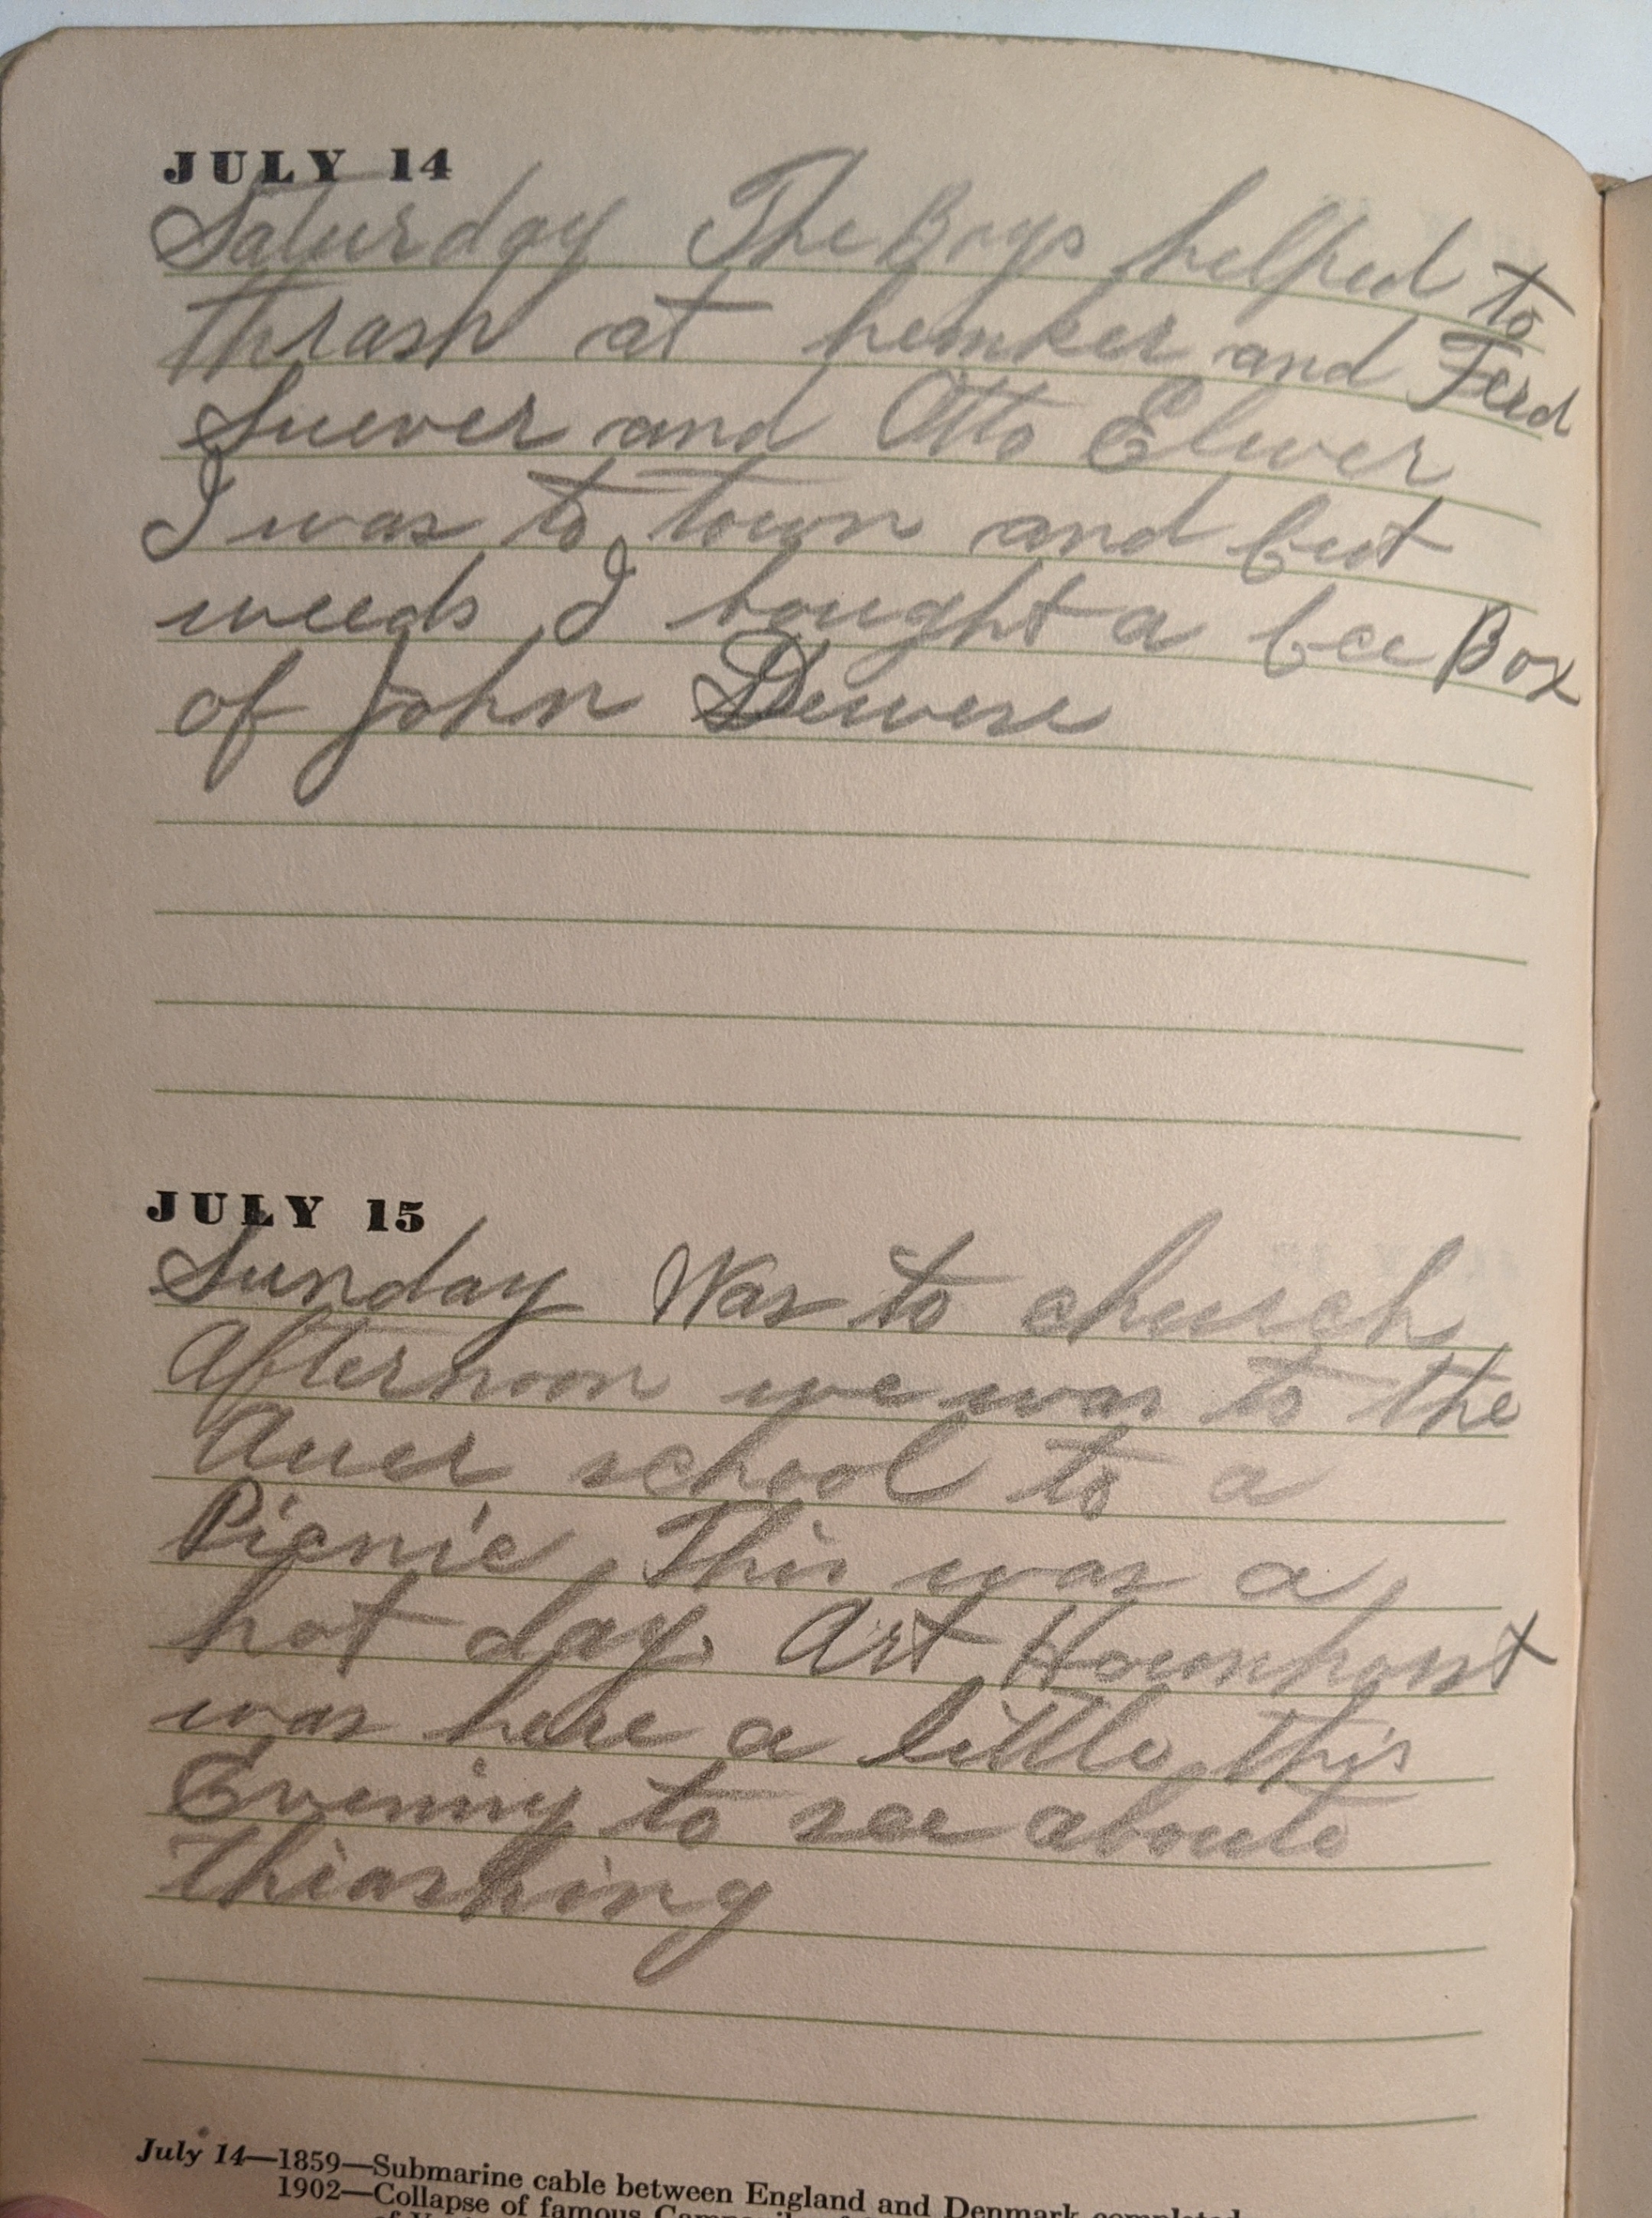 JULY 14
Saturday The Boys helped to
thrash at hemker and Ferd
Suever and Otto Elwer
I was to town and cut
weeds I bought a bee Box
of John Dewese
JULY 15
Sunday Was to church
Afternoon we was to the
Auer school to a
Picnic, This was a
hot day. Art Hownhorst
was here a little this
Evening to see aboute
Thrashing
July 14—1859—Submarine cable between England and Denmark completed
1902—Collapse of famous